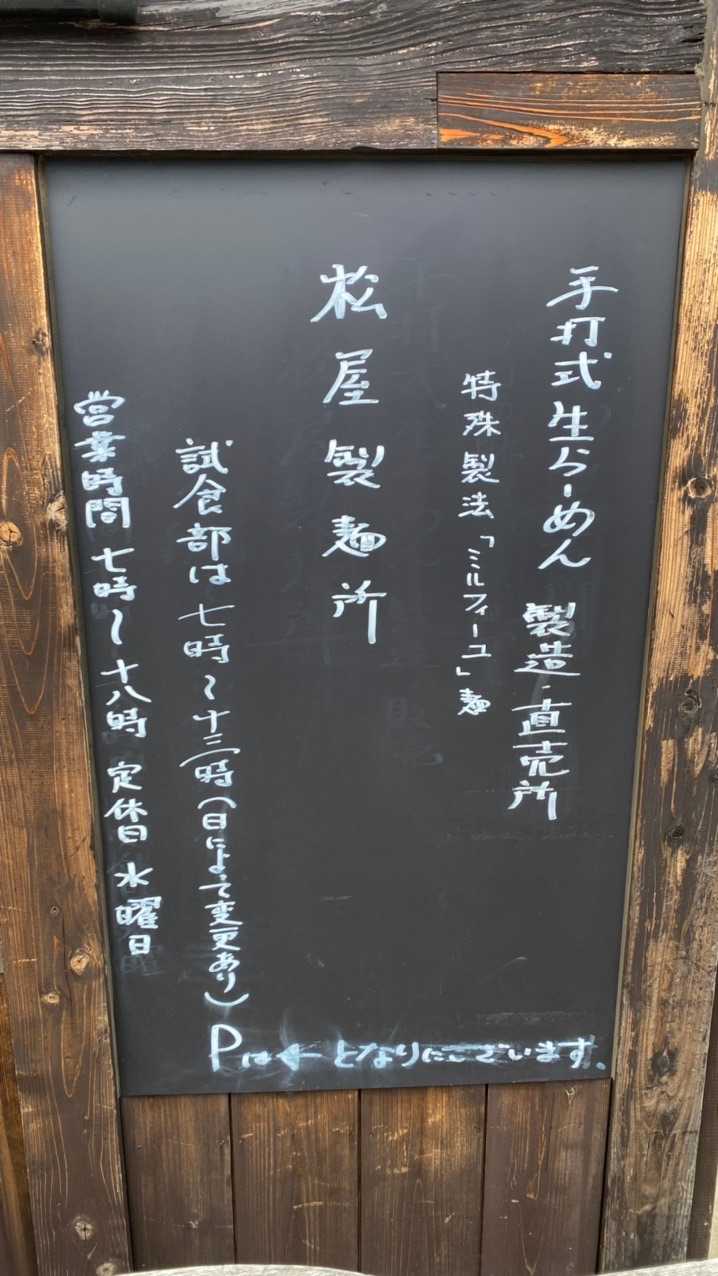 手打式生らーめん 製造・直売所
特殊製法「ミルフィーユ」麺
松屋製麺所
試食部は七時〜十三時(日によって変更あり)
営業時間 七時〜十八時 定休日 水曜日
Pは←となりにございます。